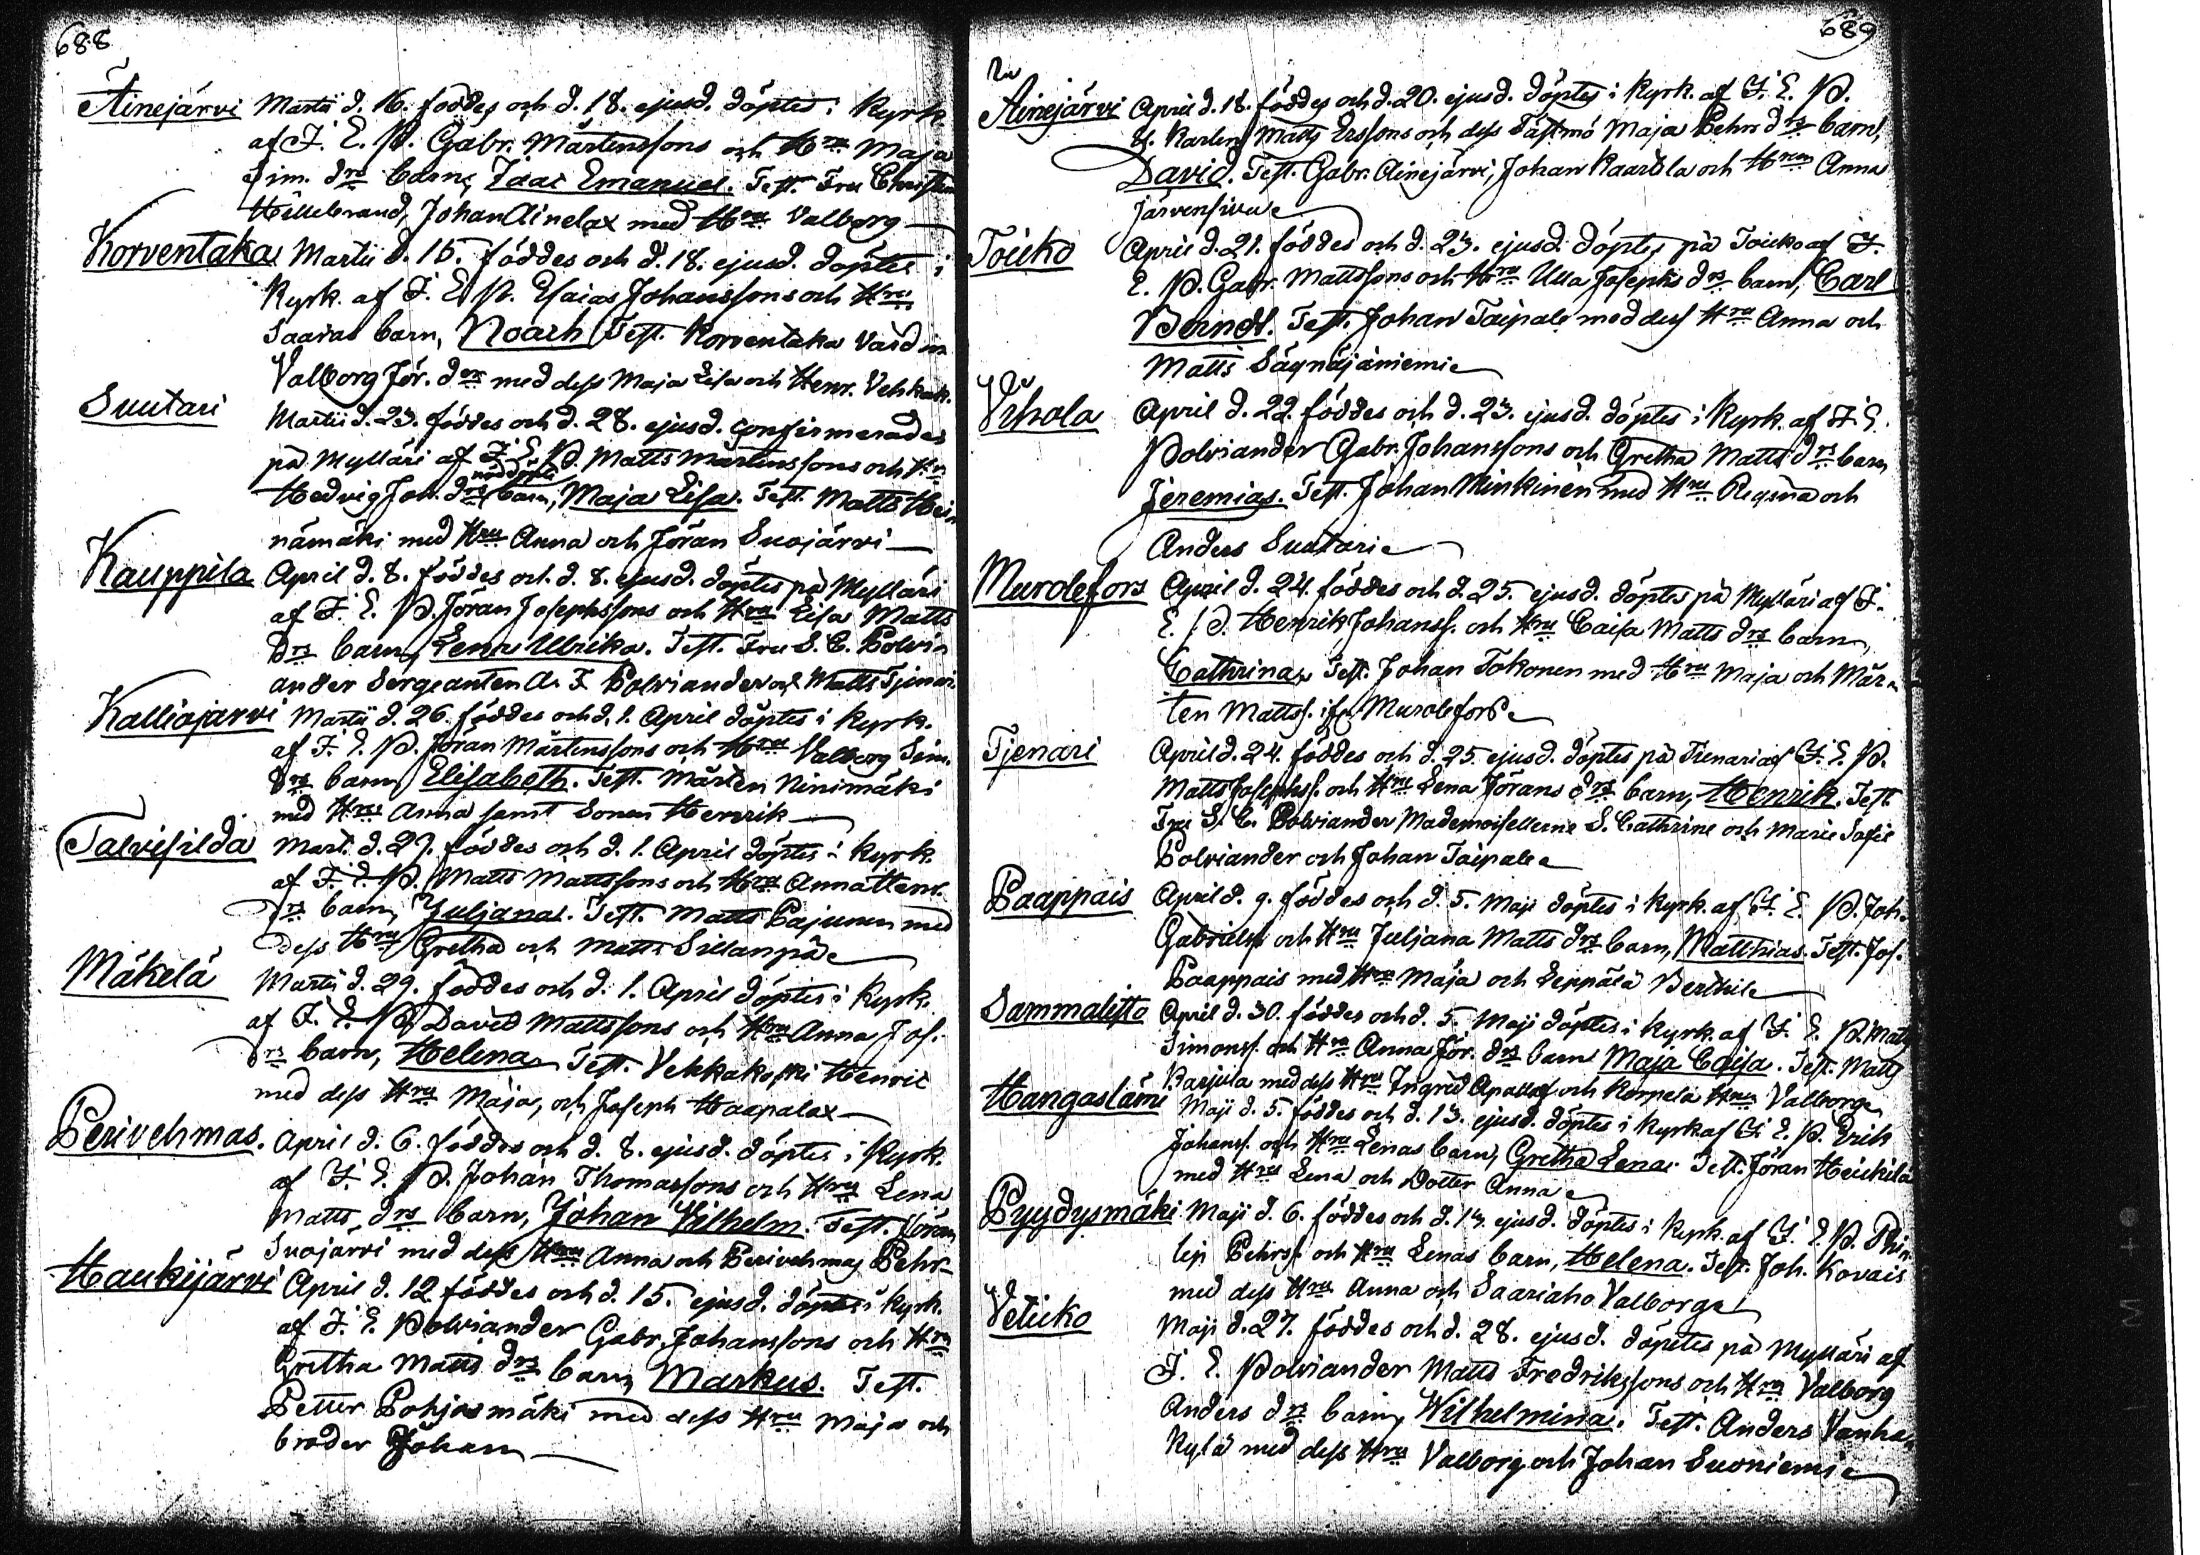 688
Äinejärvi Martii d. 16. föddes och d. 18. ejusd. döptes i Kyrk.
af F. E. P. Gabr. Mårtenssons och Hru Maja
Sim. drs barn, Isaac Emanuel. Test. Fru Christin
Hillebrand, Johan Ainelax med Hru Valborg
Korventaka Martii d. 15. föddes och d. 18. ejusd. döptes i
Kyrk. af F. E. P. Esaias Johanssons och Hru
Saaras barn, Noach Test. Korventaka Värdin
Valborg Jör. der med dess Maja Lisa och Henr. Vehkak.
Suutari Martii d. 23. föddes och d. 28. ejusd. confirmerades
på Mylläri af F. E. P. Matts Mårtenssons och Hru
Hedvig Joh. drs nöddöpte barn, Maja Lisa. Test. Matts Hei-
nämäki med Hru Anna och Jöran Suojärvi
Kauppila April d. 8. föddes och d. 8. ejusd. döptes på Mylläri
af F. E. P. Jöran Josephssons och Hru Lisa Matts
drs barn, Lena Ulrika. Test. Fru S. C. Polvi-
ander Sergeanten A. F. Polviander och Matts Tjenari.
Kalliojärvi Martii d. 26. föddes och d. 1. April döptes i Kyrk.
af F. E. P. Jöran Mårtenssons och Hru Valborg Sim.
drs barn, Elisabeth. Test. Mårten Ninimäki
med Hru Anna samt Sonen Henrik
Talvisilda Mart. d. 27. föddes och d. 1. April döptes i Kyrk.
af F. E. P. Matts Mattssons och Hru Anna Henr.
drs barn, Juljana. Test. Matts Pajunen med
dess Hru Gretha och Matts Sillanpä
Mäkelä Martii d. 29. föddes och d. 1. April döptes i Kyrk.
af F. E. P. David Mattssons och Hru Anna Jos.
drs barn, Helena. Test. Vehkakoski Henric
med dess Hru Maja, och Joseph Haapalax
Perivehmas. April d. 6. föddes och d. 8. ejusd. döptes i Kyrk.
af F. E. P. Johan Thomassons och Hru Lena
Matts drs barn, Johan Vilhelm. Test. Jöran
Suojärvi med dess Hru Anna och Perivehmas Pehr
Haukijärvi April d. 12. föddes och d. 15. ejusd. döptes i Kyrk.
af F. E. Polviander Gabr. Johanssons och Hru
Gretha Matts drs barn, Markus. Test.
Petter Pohjasmäki med dess Hru Maja och
broder Johan
689
Äinejärvi April d. 18. föddes och d. 20. ejusd. döptes i Kyrk. af F. E. P.
Karlen Matts Erssons och dess Fästmö Maja Pehrs drs barn,
David. Test. Gabr. Ainejärvi, Johan Kaarela och Hrun Anna
Järvensivu
Toiko April d. 21. föddes och d. 23. ejusd. döptes på Toiko af F.
E. P. Gabr. Mattssons och Hru Ulla Josephs drs barn, Carl
Berndt. Test. Johan Taipale med dess Hru Anna och
Matts Säynäjäniemi
Vihola April d. 22. föddes och d. 23. ejusd. döptes i Kyrk. af F. E.
Polviander Gabr. Johanssons och Gretha Matts drs barn
Jeremias. Test. Johan Minkinen med Hru Regina och
Anders Suutari
Murolefors April d. 24. föddes och d. 25. ejusd. döptes på Mylläri af F.
E. P. Henrik Johanss. och Hru Caisa Matts drs barn,
Cathrina, Test. Johan Tokonen med Hru Maja och Mår-
ten Mattss. ifr. Murolefors
Tjenari April d. 24. föddes och d. 25. ejusd. döptes på Tienari af F. E. P.
Matts Josephss. och Hru Lena Jörans drs barn, Henrik. Test.
Fru S. C. Polviander Mademoisellerne S. Cathrine och Marie Sofie
Polviander och Johan Taipale
Paappais April d. 9. föddes och d. 5. Maji döptes i Kyrk. af F. E. P. Joh.
Gabrielss. och Hru Juljana Matts drs barn, Matthias. Test. Jos.
Paappais med Hru Maja och Leppälä Berthil
Sammalisto April d. 30. föddes och d. 5. Maji döptes i Kyrk. af F. E. P. Matts
Simonss. och Hru Anna Jör. drs barn Maja Caisa. Test. Matts
Parjula med dess Hru Ingrid och Korpela Hru Valborg
Hangaslami Maji d. 5. föddes och d. 13. ejusd. döptes i Kyrk. af F. E. P. Erik
Johanss. och Hru Lenas barn, Gretha Lena. Test. Jöran Heickilä
med Hru Lena och Dotter Anna
Pyydysmäki Maji d. 6. föddes och d. 13. ejusd. döptes i Kyrk. af F. E. P. Phi-
lip Pehrss. och Hru Lenas barn, Helena. Test. Joh. Kovais
med dess Hru Anna och Saariaho Valborg
Veticko Maji d. 27. föddes och d. 28. ejusd. döptes på Mylläri af
F. E. Polviander Matts Fredrikssons och Hru Valborg
Anders drs barn, Wilhelmina. Test. Anders Vanha-
Kylä med dess Hru Valborg och Johan Suoniemi